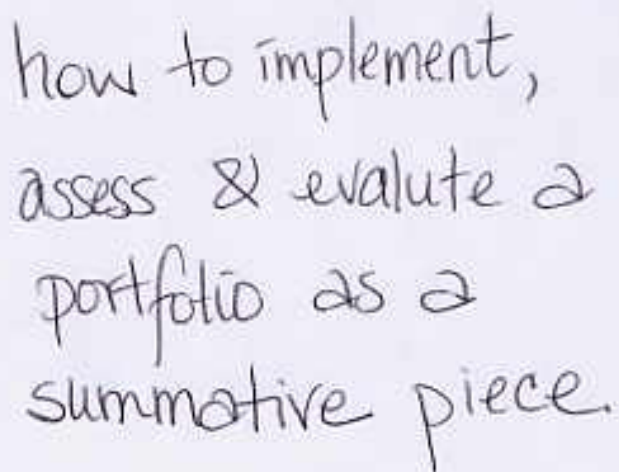 how to implement,
assess & evalute a
portfolio as a
summative piece.